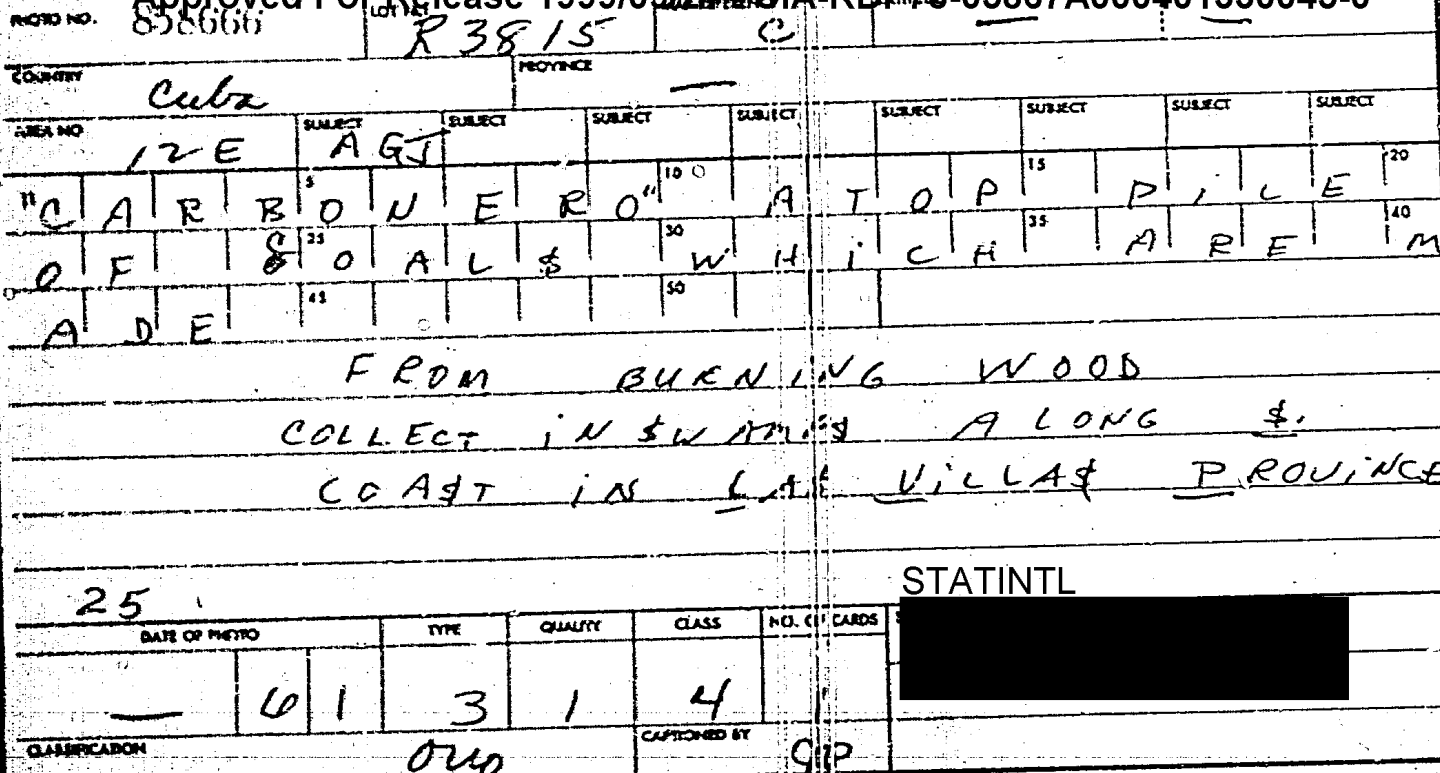 Approved For Release 1999/
PHOTO NO. 858666 LOT R3815 C
COUNTRY Cuba PROVINCE —
AREA NO 12E SUBJECT AGJ SUBJECT SUBJECT SUBJECT SUBJECT SUBJECT SUBJECT SUBJECT
5 10 15 20
"CARBONERO" ATOP PILE
25 30 35 40
OF COAL$ WHiCH ARE M
45 50
ADE
FROM BURNING WOOD
COLLECT iN $WAMP$ ALONG $.
COA$T iN LA$ ViLLA$ PROViNCE
STATINTL
25
DATE OF PHOTO TYPE QUALITY CLASS NO. OF CARDS
— 61 3 1 4 1
CLASSIFICATION OUO CAPTIONED BY